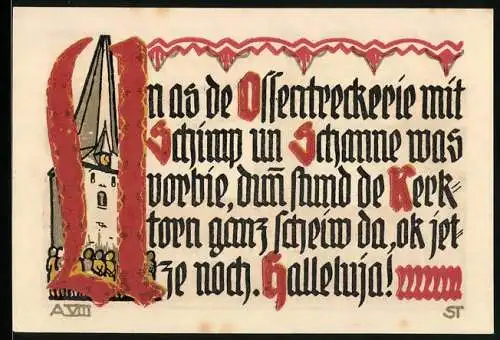 Un as de Ossentreckerie mit
Schimp un Schanne was
vorbie, dun̄ stund de Kerk-
torn ganz scheiw da, ok jet-
ze noch. Halleluja!
A VIII ST